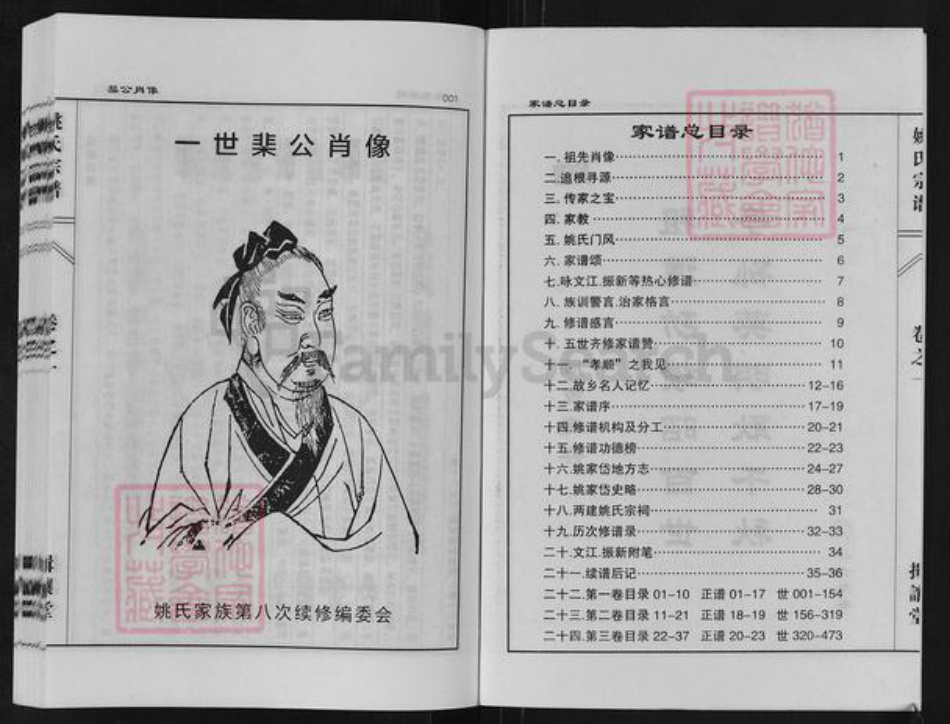 棐公肖像
001
一世棐公肖像
姚氏家族第八次续修编委会
家谱总目录
家谱总目录
一.祖先肖像 1
二.追根寻源 2
三.传家之宝 3
四.家教 4
五.姚氏门风 5
六.家谱颂 6
七.咏文江.振新等热心修谱 7
八.族训警言.治家格言 8
九.修谱感言 9
十.五世齐修家谱赞 10
十一.“孝顺”之我见 11
十二.故乡名人记忆 12-16
十三.家谱序 17-19
十四.修谱机构及分工 20-21
十五.修谱功德榜 22-23
十六.姚家岱地方志 24-27
十七.姚家岱史略 28-30
十八.两建姚氏宗祠 31
十九.历次修谱录 32-33
二十.文江.振新附笔 34
二十一.续谱后记 35-36
二十二.第一卷目录 01-10 正谱 01-17 世 001-154
二十三.第二卷目录 11-21 正谱 18-19 世 156-319
二十四.第三卷目录 22-37 正谱 20-23 世 320-473
姚氏宗谱
卷之
FamilySearch